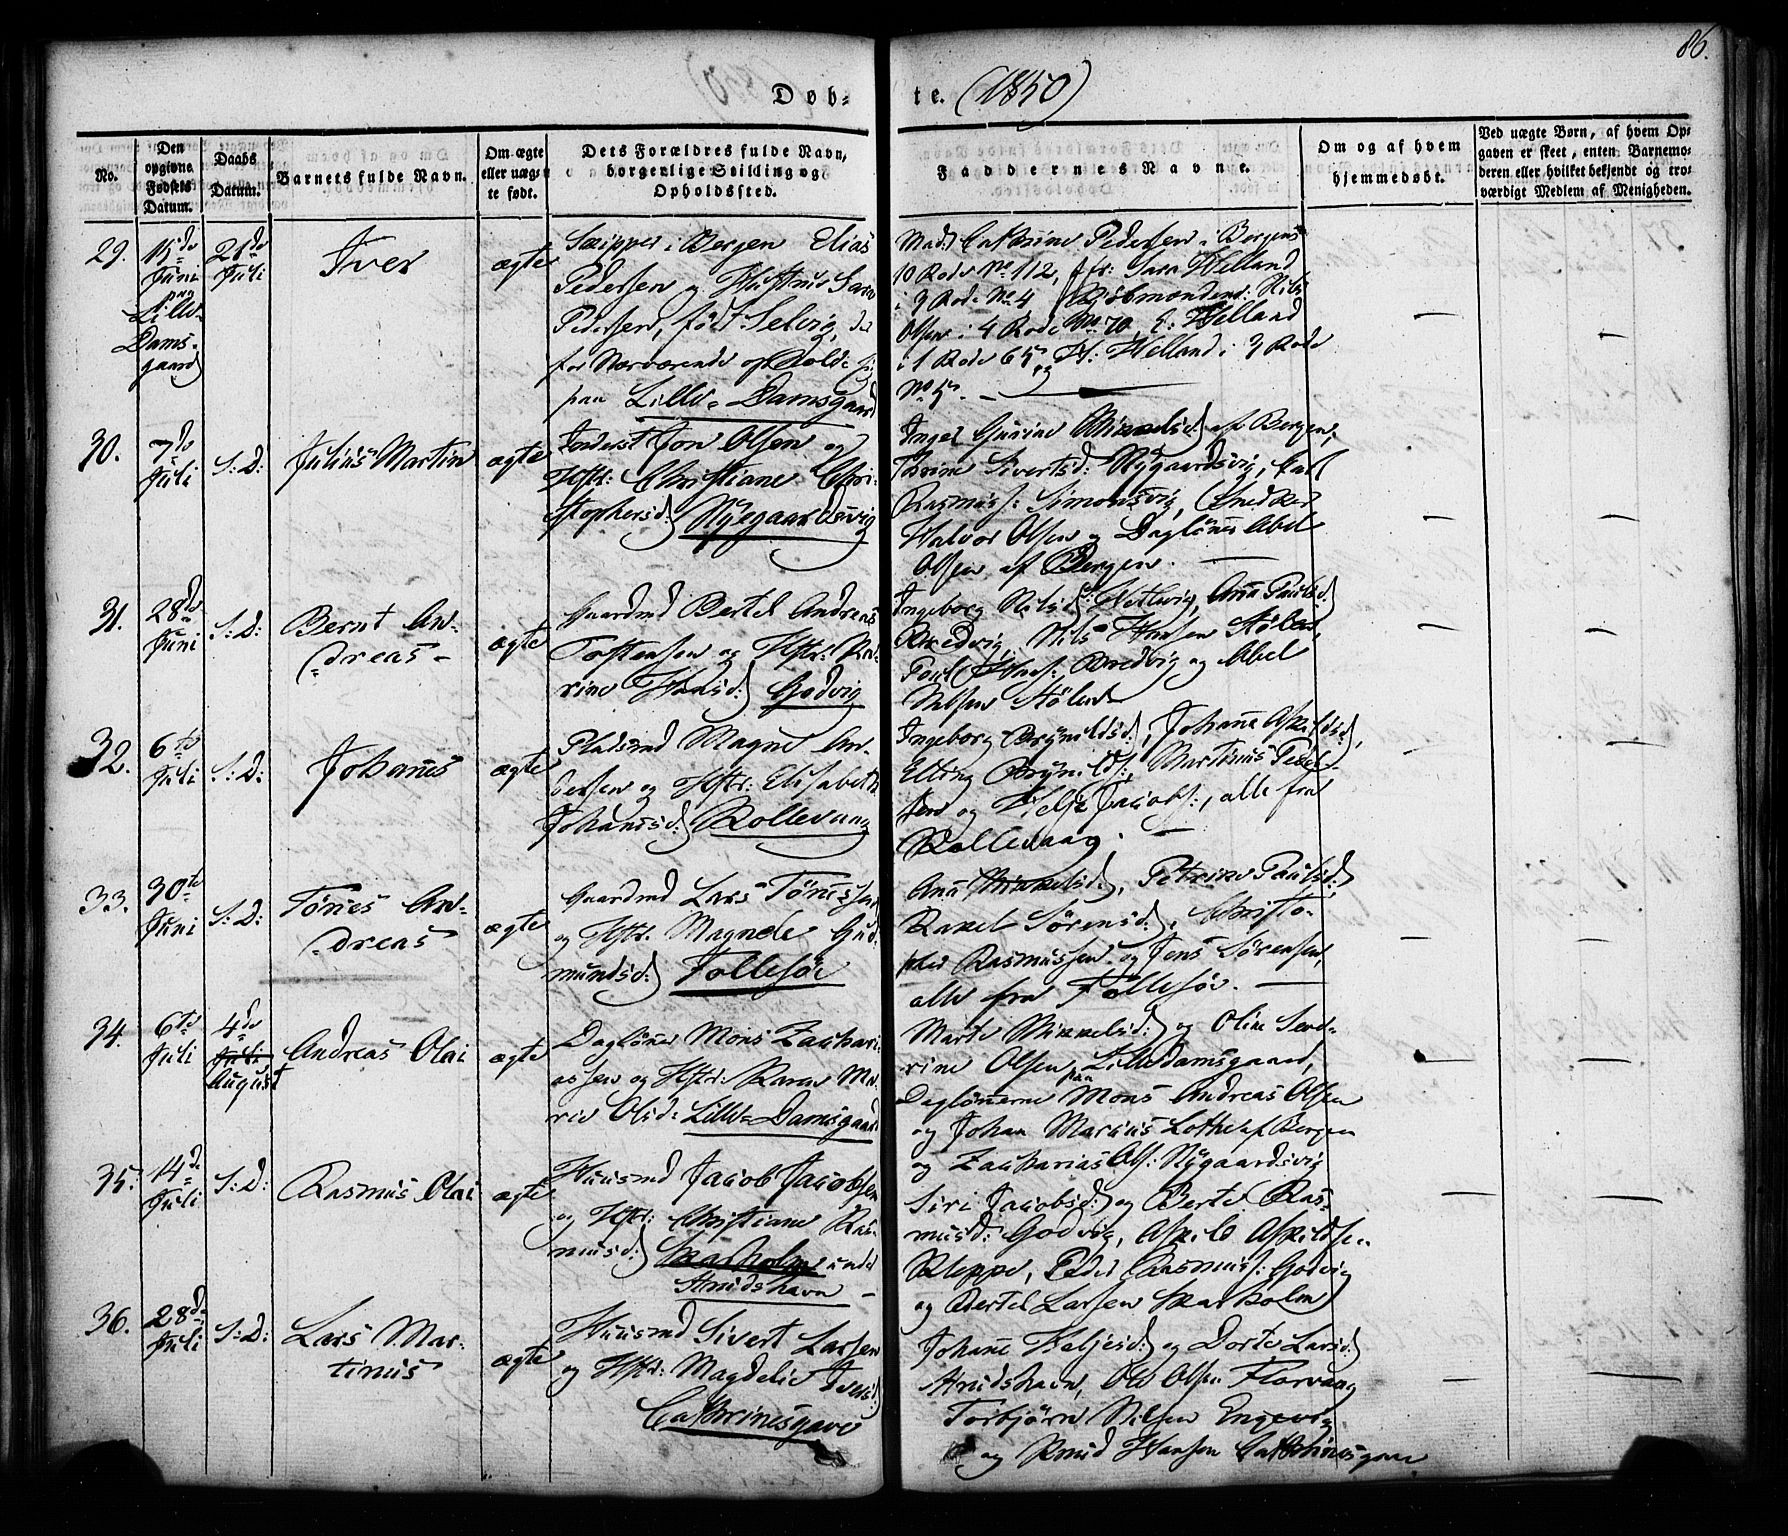 86.
Døb-
te. (1850)
No.
Den opgivne Fødsels Datum.
Daabs Datum.
Barnets fulde Navn.
Om ægte eller uægte født.
Dets Forældres fulde Navn, borgerlige Stilling og Opholdssted.
Faddernes Navne.
Om og af hvem hjemmedøbt.
Ved uægte Børn, af hvem Opgaven er skeet, enten Barnemoderen eller hvilket bekjendt og troværdigt Medlem af Menigheden.
29.
15de Juni paa Lille-Damsgaard
21de Juli
Iver
ægte
Skipper i Bergen Elias
Pedersen og Hustrue Sara
Pedersen, født Selvig, der
for Nærværende opholde sig
paa Lille-Damsgaard
Mad: Cathrine Pedersen i Bergens
10 Rode No 112, Jfr: Sara Helland
i 3 Rode No 4 Nils
Olsen i 4 Rode No 70, E: Helland
i 1 Rode 65, og H: Helland i 3 Rode
No 5. —
30.
7de Juli
S: D:
Julius Martin
ægte
Inderst Jon Olsen og
Hstr: Christiane Chri-
stophersd: Nygaardsvig
Inger Gurine Mikkelsd: af Bergen,
Thrine Sivertsd: Nygaardsvig, Carl
Rasmuss: Simonsvig, Snedker
Halvor Olsen og Daglønner Abel
Olsen af Bergen. —
31.
28de Juni
S: D:
Bernt An-
dreas —
ægte
Gaardmd Bertel Andreas
Tostensen og Hstr: Ka-
rine Hansd: Godvig
Ingeborg Nilsd: Hetlevig, Anna Paulsd:
Bredvig, Nils Hansen Hølen,
Poul Hans: Bredvig og Abel
Nilsen Hølen
32.
6te Juli
S: D:
Johanes
ægte
Pladsmd Magne An-
dersen og Hstr: Elisabeth
Johanesd: Rollevaag
Ingeborg Brynildsd:, Johanne Askildsd:,
Elling Brynilds:, Martinus Peder-
sen og Helje Jacobs:, alle fra
Rollevaag. —
33.
30te Juni
S: D:
Tönes An-
dreas
ægte
Gaardmd Lars Tönesen
og Hstr. Magnele Gud-
mundsd: Follesøe
Anna Mikkelsd:, Petrine Paulsd:
Rakel Sørensd:, Christo-
pher Rasmussen og Jens Sørensen,
alle fra Follesøe. —
34.
6te Juli
4de Juli August
Andreas Olai
ægte
Daglønner Mons Zachari-
assen og Hstr: Karen Ma-
rie Olsd: Lille-Damsgaard
Marte Mikkelsd: og Oline Seve-
rine Olsen paa Lille Damsgaard,
Daglønnerne Mons Andreas Olsen
og Johan Marius Lothe af Bergen
og Zacharias Ols: Nygaardsvig
35.
14de Juli
S: D:
Rasmus Olai
ægte
Huusmd Jacob Jacobsen
og Hstr: Christiane Ras-
musd: Skarholm under
Strudshavn —
Siri Jacobsd: og Berte Ras-
musd: Godvig, Askild Askildsen
Kleppe, Peder Rasmuss: Godvig
og Bertel Larsen Skarholm
36.
28de Juli
S: D:
Lars Mar-
tinus
ægte
Huusmd Sivert Larsen
og Hstr: Magdeli Iversd:
Cathrinesgave
Johanne Heljesd: og Dorte Larsd:
Strudshavn, Ole Olsen Florvaag
Torbjørn Nilsen Engevig
og Knud Hansen Cathrinesgave